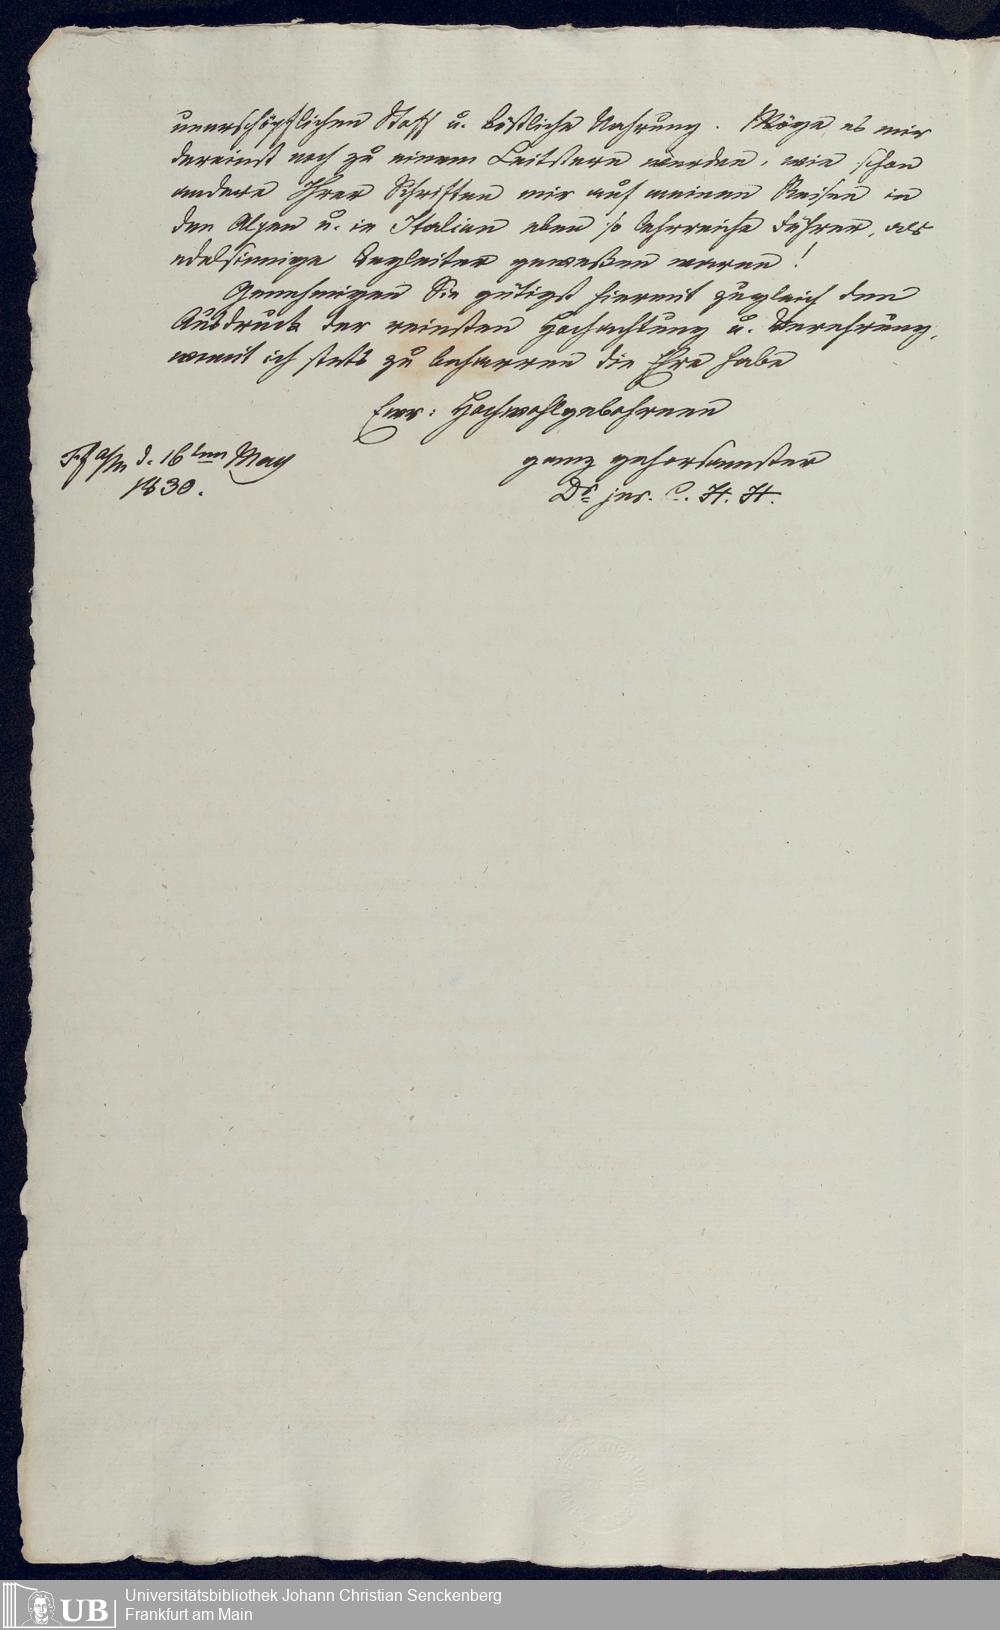 unerschöpflichen Stoff u. köstliche Nahrung. Möge es mir
dereinst noch zu einem Leitstern werden, wie schon
andere Ihrer Schriften mir auf meinen Reisen in
den Alpen u. in Italien eben so lehrreiche Führer, als
edelsinnige Begleiter geweßen waren!
Genehmigen Sie gütigst hiermit zugleich den
Ausdruck der reinsten Hochachtung u. Verehrung,
womit ich stets zu beharren die Ehre habe
Ewr: Hochwohlgebohrnen
ganz gehorsamster
Dr. jur. C. H. H.
Ff a/m d. 16ten May
1830.
UB
Universitätsbibliothek Johann Christian Senckenberg
Frankfurt am Main